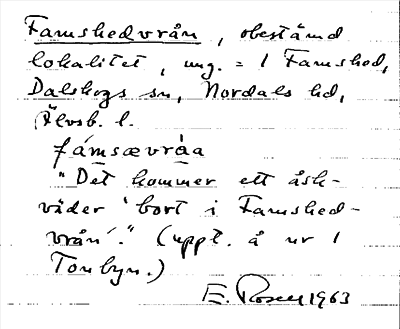 Famshedvrån, obestämd
lokalitet, ung. = 1 Famshed,
Dalskogs sn, Nordals hd,
Älvsb. l.
fámsævråa
"Det kommer ett åsk-
väder 'bort i Famshed-
vrån'." (uppt. å nr 1
Tonbyn.)
E. Rosen 1963